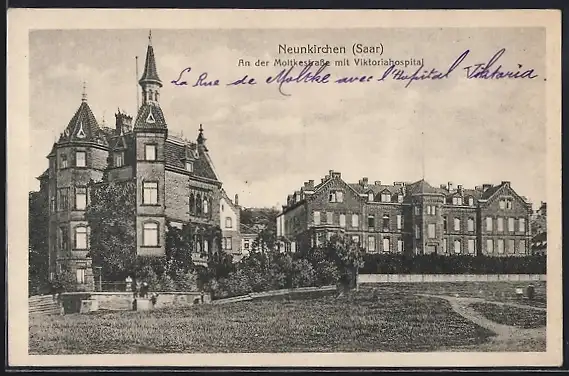 Neunkirchen (Saar)
An der Moltkestraße mit Viktoriahospital
La Rue de Moltke avec l'Hopital Viktoria